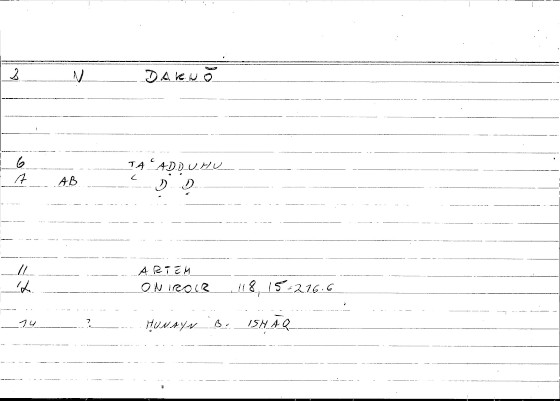 3 N DAKNŌ
6 TAʿAḌḌUHU
7 AB ʿ Ḍ Ḍ
11 ARTEM
12 ONIROCR 118, 15-216.6
14 ? HUNAYN B. ISHĀQ